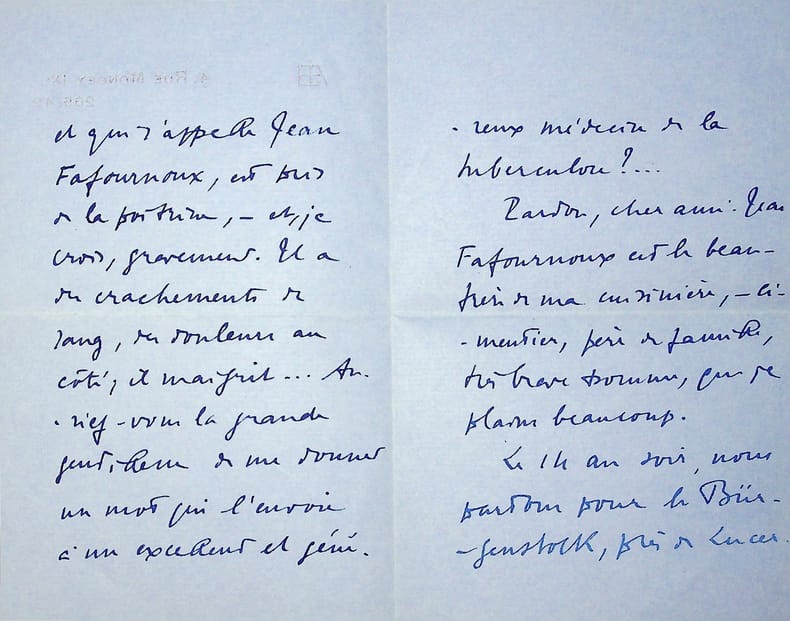 4, RUE MONCEY
et qui s'appelle Jean
Fafournoux, est pris
de la poitrine, – et, je
crois, gravement. Il a
des crachements de
sang, des douleurs au
côté, il maigrit... Au-
-riez-vous la grande
gentillesse de me donner
un mot qui l'envoie
à un excellent et géné-
-reux médecin de la
tuberculose?...
Pardon, cher ami. Jean
Fafournoux est le beau-
frère de ma cuisinière, – ci-
-mentier, père de famille,
très brave homme, que je
plains beaucoup.
Le 14 au soir, nous
partons pour le Bür-
-genstock, près de Lucer-